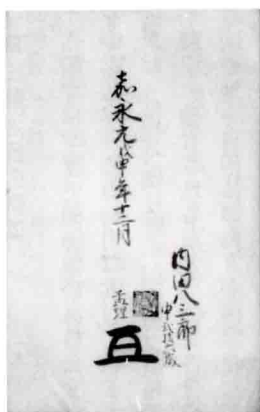 嘉永元戊申年十二月
内田八三郎
申弐拾六歳
孟理